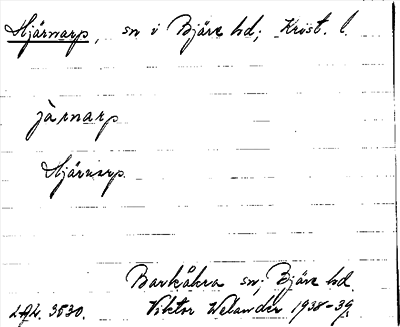 Hjärnarp, sn i Bjäre hd; Krist. l.
järnarp
Hjärnarp.
Barkåkra sn; Bjäre hd.
Viktor Welander 1938-39.